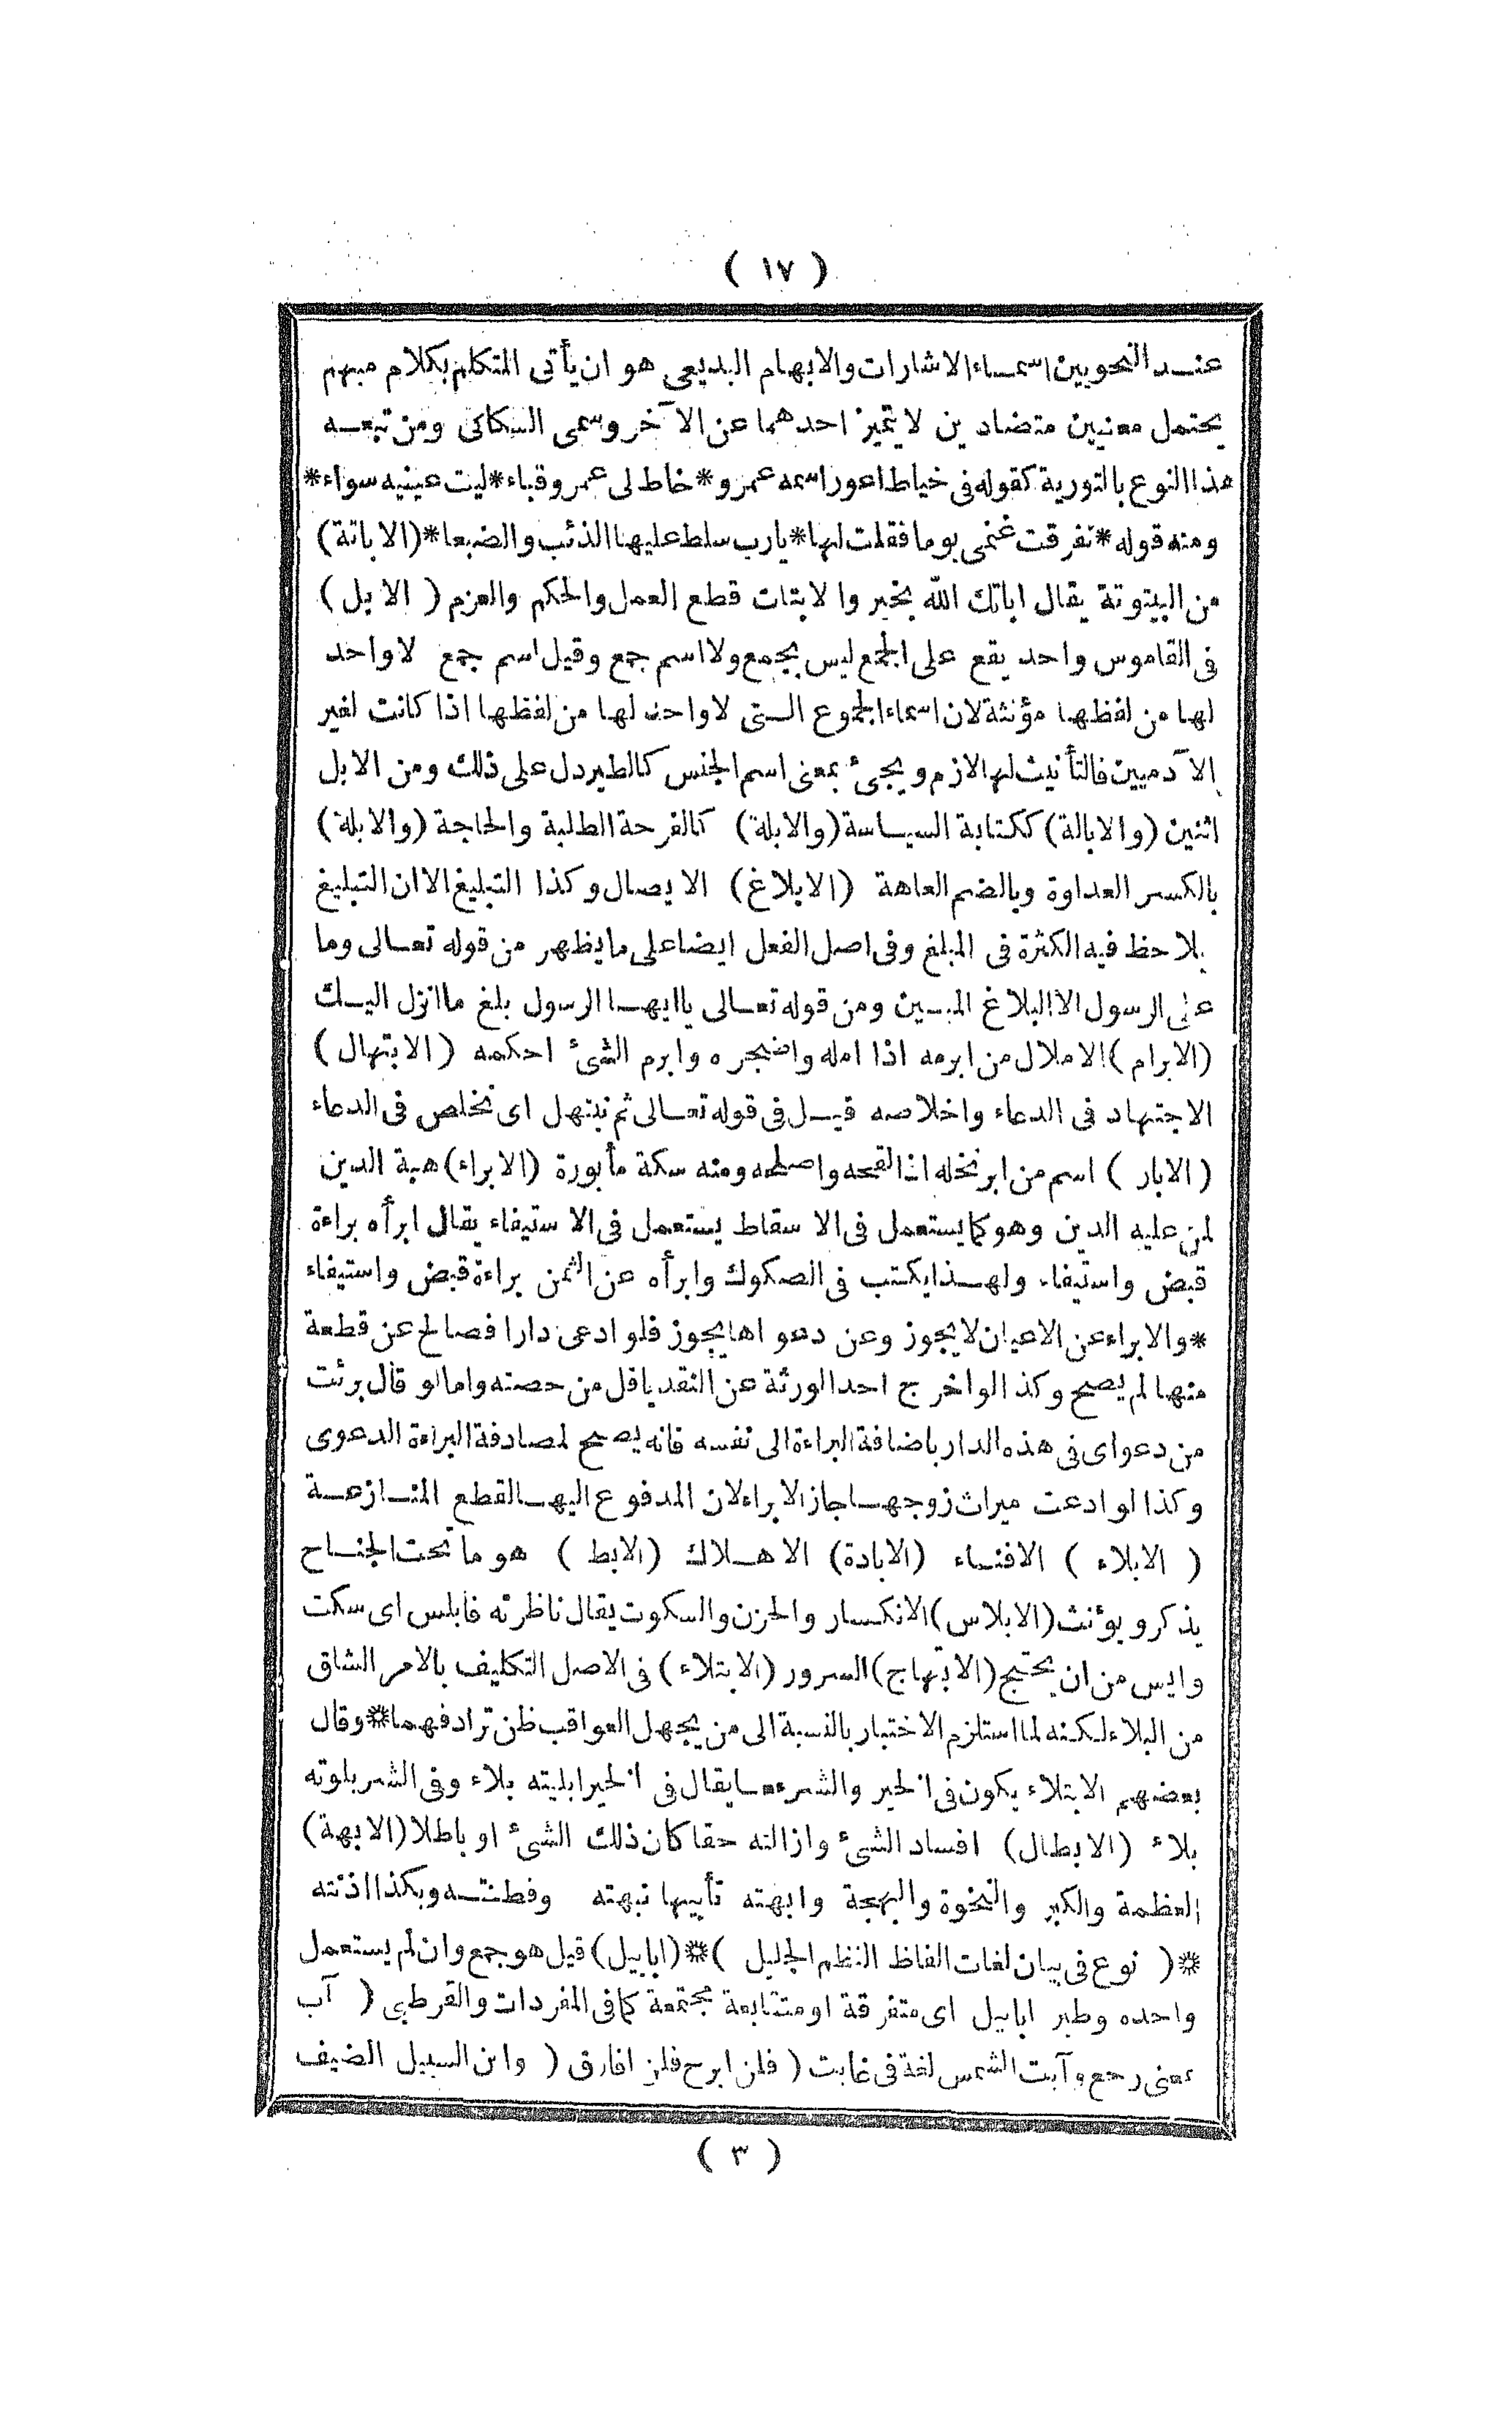 ( ١٧ )
عند النحويين اسماء الاشارات والابهام البديعى هو ان يأتى المتكلم بكلام مبهم
يحتمل معنيين متضادين لا يتميز احدهما عن الآخر وسمى السكاكى ومن تبعه
هذا النوع بالتورية كقوله فى خياط اعور اسمه عمرو * خاط لى عمرو قباء * ليت عينيه سواء *
ومنه قوله * تفرقت غنمى يوما فقلت لها * يا رب سلط عليها الذئب والضبعا * (الاباتة)
من البيتوتة يقال اباتك الله بخير والابتات قطع العمل والحكم والعزم ( الابل )
فى القاموس واحد يقع على الجمع ليس بجمع ولا اسم جمع وقيل اسم جمع لا واحد
لها من لفظها مؤنثة لان اسماء الجموع التى لا واحد لها من لفظها اذا كانت لغير
الآدميين فالتأنيث لها لازم ويجئ بمعنى اسم الجنس كالطير دل على ذلك ومن الابل
اثنين (والابالة) ككتابة السياسة (والابلة) كالفرحة الطلبة والحاجة (والابلة)
بالكسر العداوة وبالضم العاهة (الابلاغ) الايصال وكذا التبليغ الا ان التبليغ
يلاحظ فيه الكثرة فى المبلغ وفى اصل الفعل ايضا على ما يظهر من قوله تعالى وما
على الرسول الا البلاغ المبين ومن قوله تعالى يا ايها الرسول بلغ ما انزل اليك
(الابرام) الاملال من ابرمه اذا امله واضجره وابرم الشئ احكمه (الابتهال)
الاجتهاد فى الدعاء واخلاصه قيل فى قوله تعالى ثم نبتهل اى نخلص فى الدعاء
(الابار ) اسم من ابر نخله اذا لقحه واصلحه ومنه سكة مأبورة (الابراء) هبة الدين
لمن عليه الدين وهو كما يستعمل فى الاسقاط يستعمل فى الاستيفاء يقال ابرأه براءة
قبض واستيفاء ولهذا يكتب فى الصكوك وابرأه عن الثمن براءة قبض واستيفاء
* والابراء عن الاعيان لا يجوز وعن دعواها يجوز فلو ادعى دارا فصالح عن قطعة
منها لم يصح وكذا لو اخرج احد الورثة عن النقد باقل من حصته واما لو قال برئت
من دعواى فى هذه الدار باضافة البراءة الى نفسه فانه يصح لمصادفة البراءة الدعوى
وكذا لو ادعت ميراث زوجها جاز الابراء لان المدفوع اليها لقطع المنازعة
( الابلاء ) الافناء (الابادة) الاهلاك (الابط ) هو ما تحت الجناح
يذكر ويؤنث (الابلاس) الانكسار والحزن والسكوت يقال ناظرته فأبلس اى سكت
وايس من ان يحتج (الابتهاج) السرور (الابتلاء) فى الاصل التكليف بالامر الشاق
من البلاء لكنه لما استلزم الاختبار بالنسبة الى من يجهل العواقب ظن ترادفهما * وقال
بعضهم الابتلاء يكون فى الخير والشر معا يقال فى الخير ابليته بلاء وفى الشر بلوته
بلاء (الابطال) افساد الشئ وازالته حقا كان ذلك الشئ او باطلا (الابهة)
العظمة والكبر والنخوة والبهجة وابهته تأبيها نبهته وفطنته وبكذا اذنته
* ( نوع فى بيان لغات الفاظ النظم الجليل ) * (ابابيل) قيل هو جمع وان لم يستعمل
واحده وطير ابابيل اى متفرقة او متتابعة مجتمعة كما فى المفردات والقرطبى ( آب
بمعنى رجع وآبت الشمس لغة فى غابت ( فلن ابرح فلن افارق ( وابن السبيل الضيف
( ٣ )